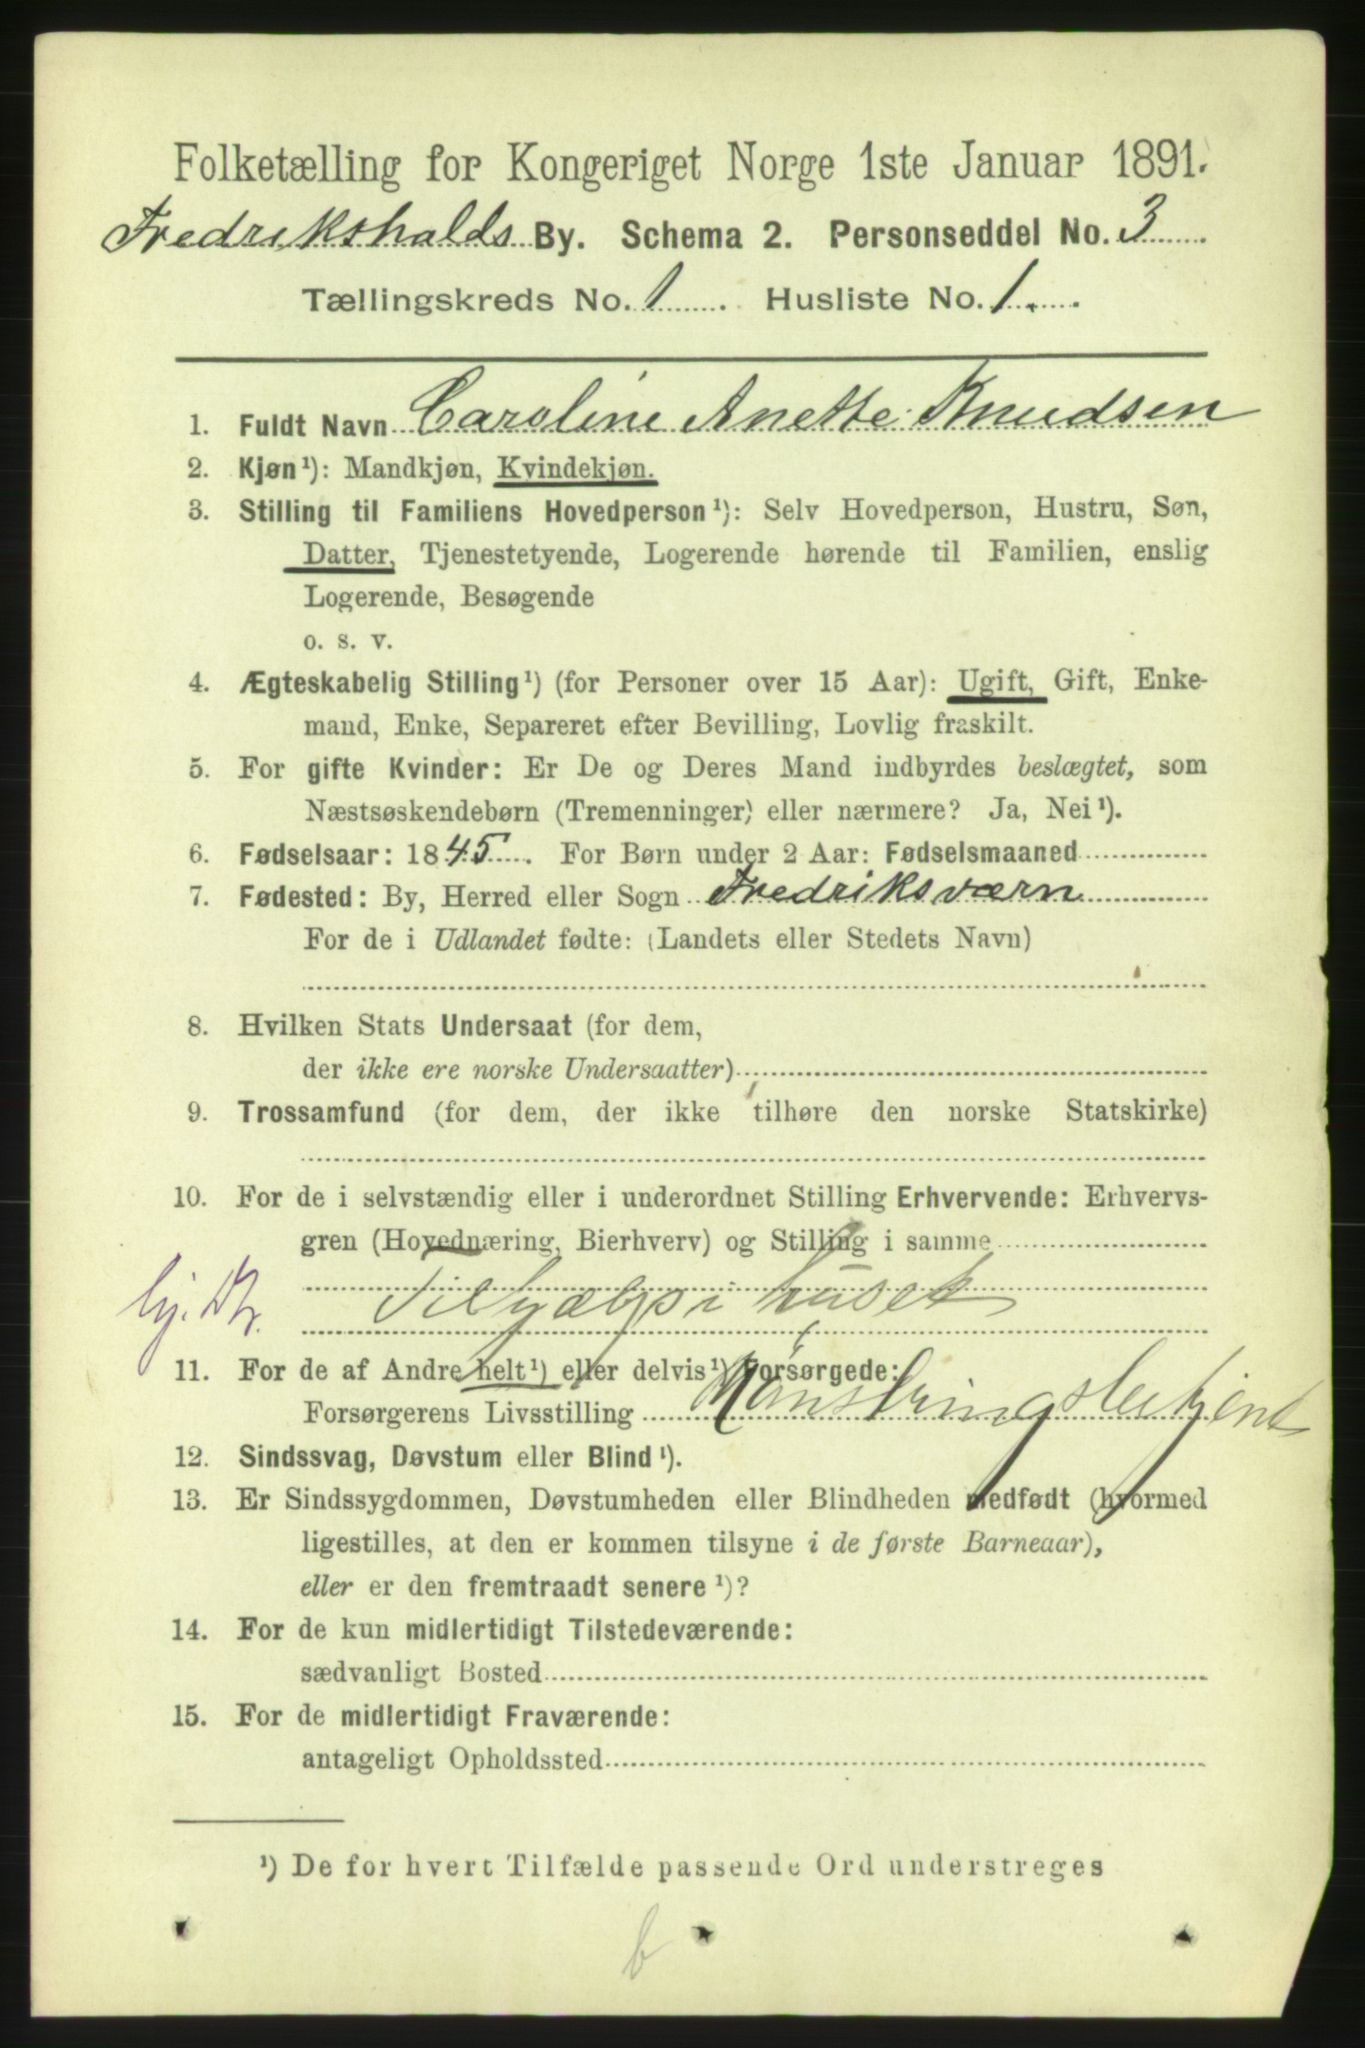 Folketælling for Kongeriget Norge 1ste Januar 1891.
Fredrikshalds By. Schema 2. Personseddel No. 3
Tællingskreds No. 1. Husliste No. 1.
1. Fuldt Navn Caroline Anette Knudsen
2. Kjøn¹): Mandkjøn, Kvindekjøn.
3. Stilling til Familiens Hovedperson¹): Selv Hovedperson, Hustru, Søn,
Datter, Tjenestetyende, Logerende hørende til Familien, enslig
Logerende, Besøgende
o. s. v.
4. Ægteskabelig Stilling¹) (for Personer over 15 Aar): Ugift, Gift, Enke-
mand, Enke, Separeret efter Bevilling, Lovlig fraskilt.
5. For gifte Kvinder: Er De og Deres Mand indbyrdes beslægtet, som
Næstsøskendebørn (Tremenninger) eller nærmere? Ja, Nei¹).
6. Fødselsaar: 1845. For Børn under 2 Aar: Fødselsmaaned
7. Fødested: By, Herred eller Sogn Fredriksværn
For de i Udlandet fødte: (Landets eller Stedets Navn)
8. Hvilken Stats Undersaat (for dem,
der ikke ere norske Undersaatter)
9. Trossamfund (for dem, der ikke tilhøre den norske Statskirke)
10. For de i selvstændig eller i underordnet Stilling Erhvervende: Erhvervs-
gren (Hovednæring, Bierhverv) og Stilling i samme
Tilhjælp i huset
11. For de af Andre helt¹) eller delvis¹) Forsørgede:
Forsørgerens Livsstilling Mønstringsbetjent
12. Sindssvag, Døvstum eller Blind¹).
13. Er Sindssygdommen, Døvstumheden eller Blindheden medfødt (hvormed
ligestilles, at den er kommen tilsyne i de første Barneaar),
eller er den fremtraadt senere¹)?
14. For de kun midlertidigt Tilstedeværende:
sædvanligt Bosted
15. For de midlertidigt Fraværende:
antageligt Opholdssted
¹) De for hvert Tilfælde passende Ord understreges
b